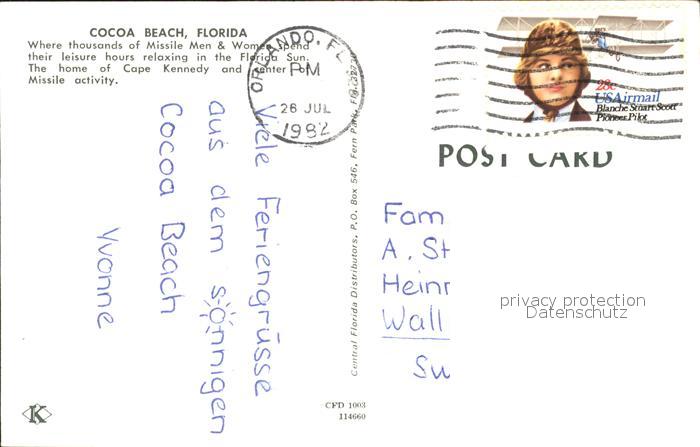 COCOA BEACH, FLORIDA
Where thousands of Missile Men & Women spend
their leisure hours relaxing in the Florida Sun.
The home of Cape Kennedy and center of
Missile activity.
ORLANDO, FL
PM
26 JUL
1982
28c
USAirmail
Blanche Stuart Scott
Pioneer Pilot
POST CARD
Viele Feriengrüsse
aus dem sonnigen
Cocoa Beach
Yvonne
Central Florida Distributors, P.O. Box 546, Fern Park, Fla.
Fam
A. St
Heinr
Wall
Su
privacy protection
Datenschutz
K
CFD 1003
114660